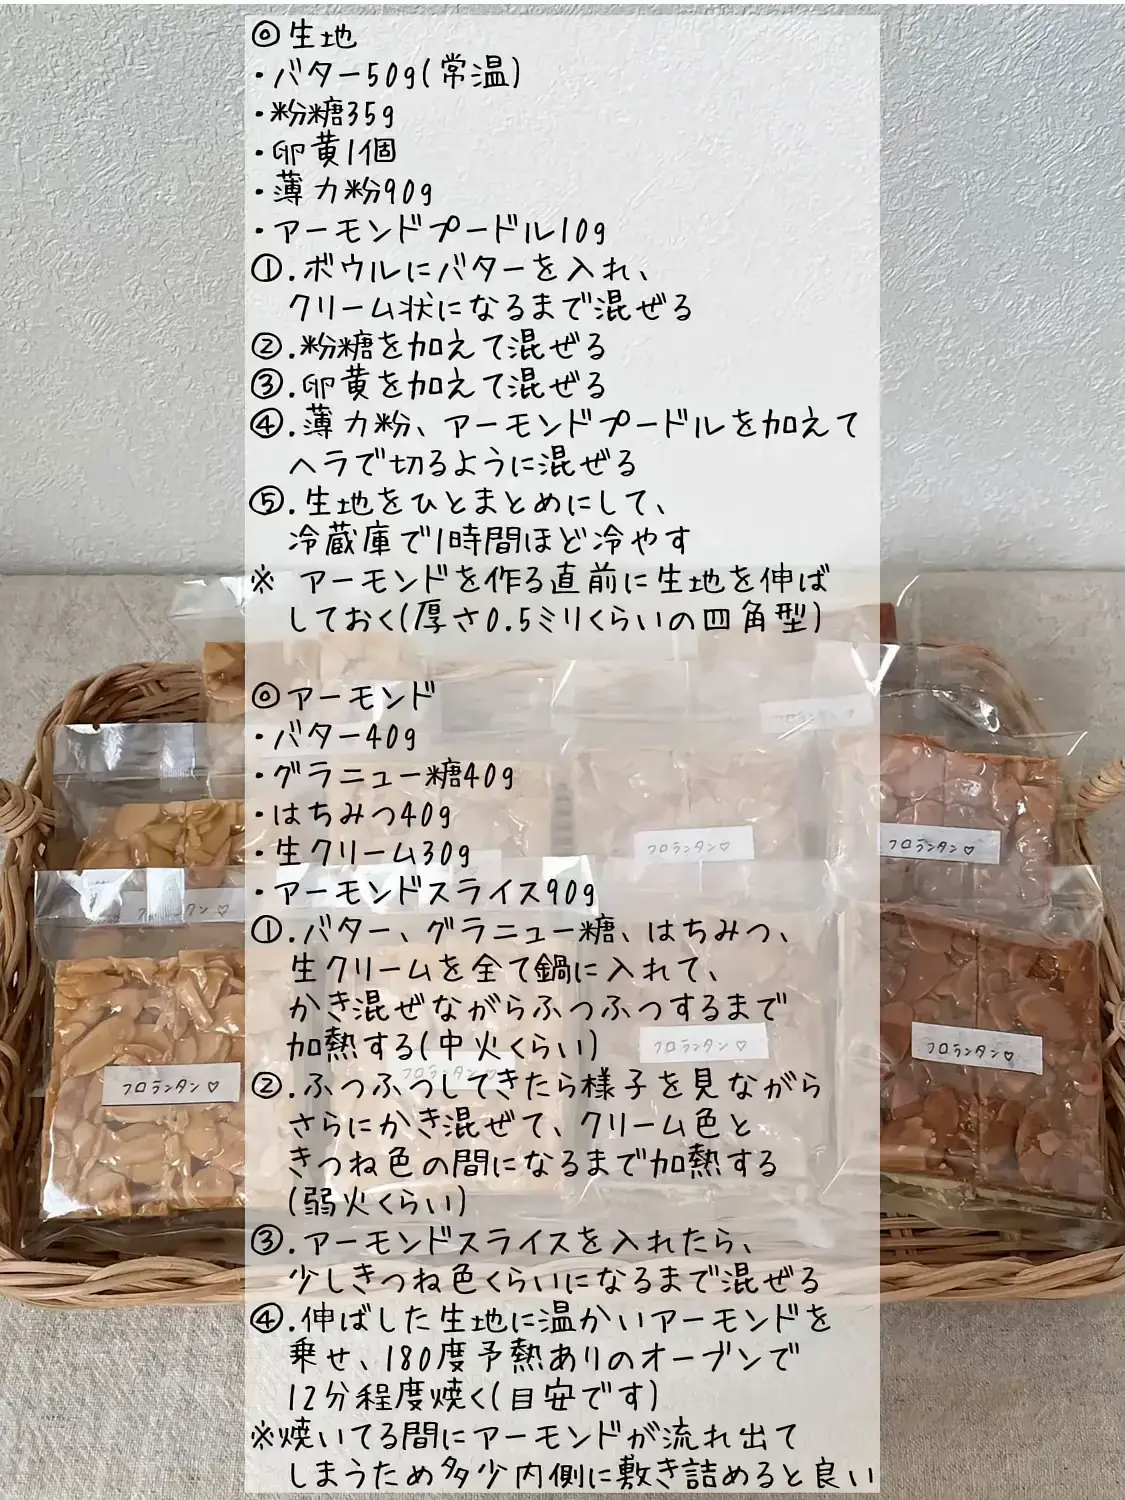 ◎生地
・バター50g(常温)
・粉糖35g
・卵黄1個
・薄力粉90g
・アーモンドプードル10g
①.ボウルにバターを入れ、
クリーム状になるまで混ぜる
②.粉糖を加えて混ぜる
③.卵黄を加えて混ぜる
④.薄力粉、アーモンドプードルを加えて
ヘラで切るように混ぜる
⑤.生地をひとまとめにして、
冷蔵庫で1時間ほど冷やす
※ アーモンドを作る直前に生地を伸ば
しておく(厚さ0.5ミリくらいの四角型)
◎アーモンド
・バター40g
・グラニュー糖40g
・はちみつ40g
・生クリーム30g
・アーモンドスライス90g
①.バター、グラニュー糖、はちみつ、
生クリームを全て鍋に入れて、
かき混ぜながらふつふつするまで
加熱する(中火くらい)
②.ふつふつしてきたら様子を見ながら
さらにかき混ぜて、クリーム色と
きつね色の間になるまで加熱する
(弱火くらい)
③.アーモンドスライスを入れたら、
少しきつね色くらいになるまで混ぜる
④.伸ばした生地に温かいアーモンドを
乗せ、180度予熱ありのオーブンで
12分程度焼く(目安です)
※焼いてる間にアーモンドが流れ出て
しまうため多少内側に敷き詰めると良い
フロランタン♡
フロランタン♡
フロランタン♡
フロランタン♡
フロランタン♡
フロランタン♡
フロランタン♡